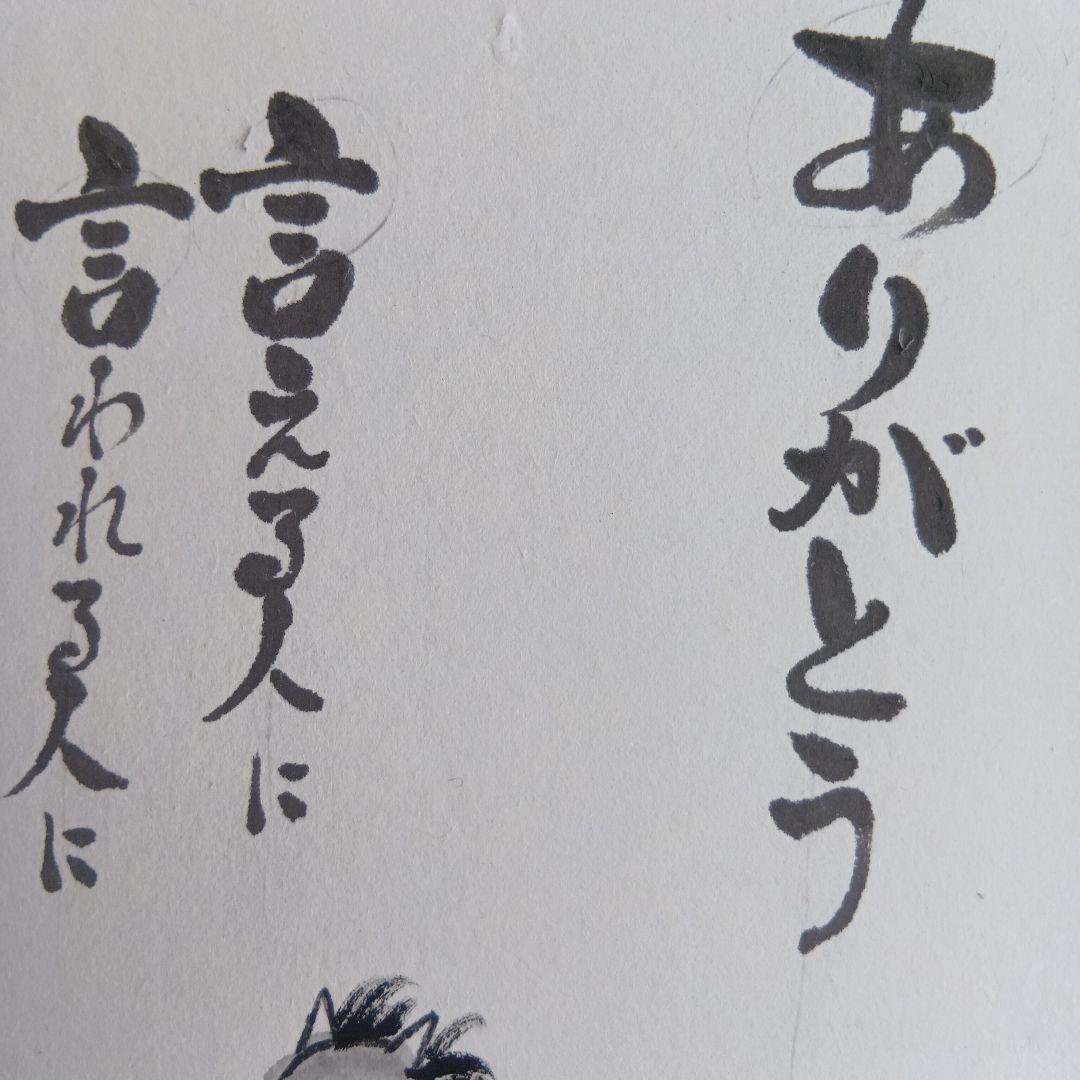 ありがとう
言える人に
言われる人に